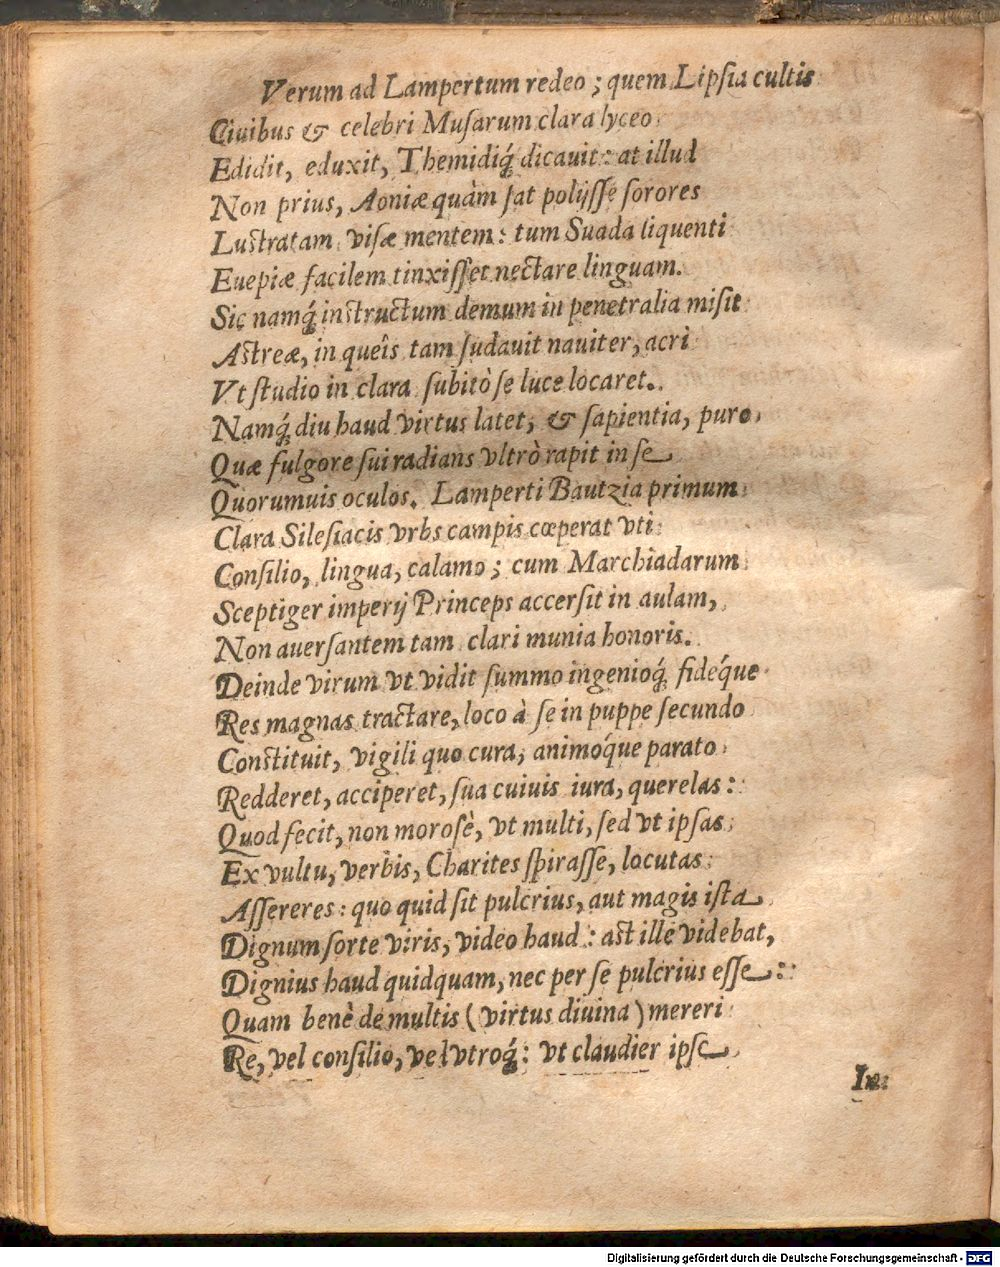 Verum ad Lampertum redeo; quem Lipsia cultis
Ciuibus & celebri Musarum clara lyceo
Edidit, eduxit, Themidiq́; dicauit: at illud
Non prius, Aoniæ quàm sat polijsse sorores
Lustratam visæ mentem: tum Suada liquenti
Euepiæ facilem tinxisset nectare linguam.
Sic namq́; instructum demum in penetralia misit
Astreæ, in queîs tam sudauit nauiter, acri
Vt studio in clara subitò se luce locaret.
Namq́; diu haud virtus latet, & sapientia, puro,
Quæ fulgore sui radians vltrò rapit in se
Quorumuis oculos. Lamperti Bautzia primum
Clara Silesiacis vrbs campis cœperat vti
Consilio, lingua, calamo; cum Marchiadarum
Sceptiger imperij Princeps accersit in aulam,
Non auersantem tam clari munia honoris.
Deinde virum vt vidit summo ingenioq́; fidéque
Res magnas tractare, loco à se in puppe secundo
Constituit, vigili quo cura, animóque parato
Redderet, acciperet, sua cuiuis iura, querelas:
Quod fecit, non morosè, vt multi, sed vt ipsas
Ex vultu, verbis, Charites spirasse, locutas
Assereres: quo quid sit pulcrius, aut magis ista
Dignum sorte viris, video haud: ast ille videbat,
Dignius haud quidquam, nec per se pulcrius esse:
Quam benè de multis (virtus diuina) mereri
Re, vel consilio, vel vtroq́;: vt claudier ipse
In
Digitalisierung gefördert durch die Deutsche Forschungsgemeinschaft - DFG